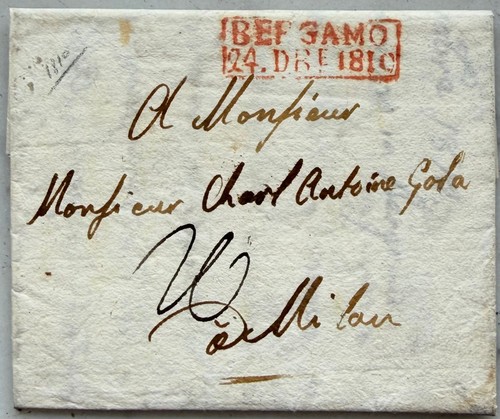 1810
BERGAMO
24. DRE 1810
A Monsieur
Monsieur Charl Antoine Gola
à Milan